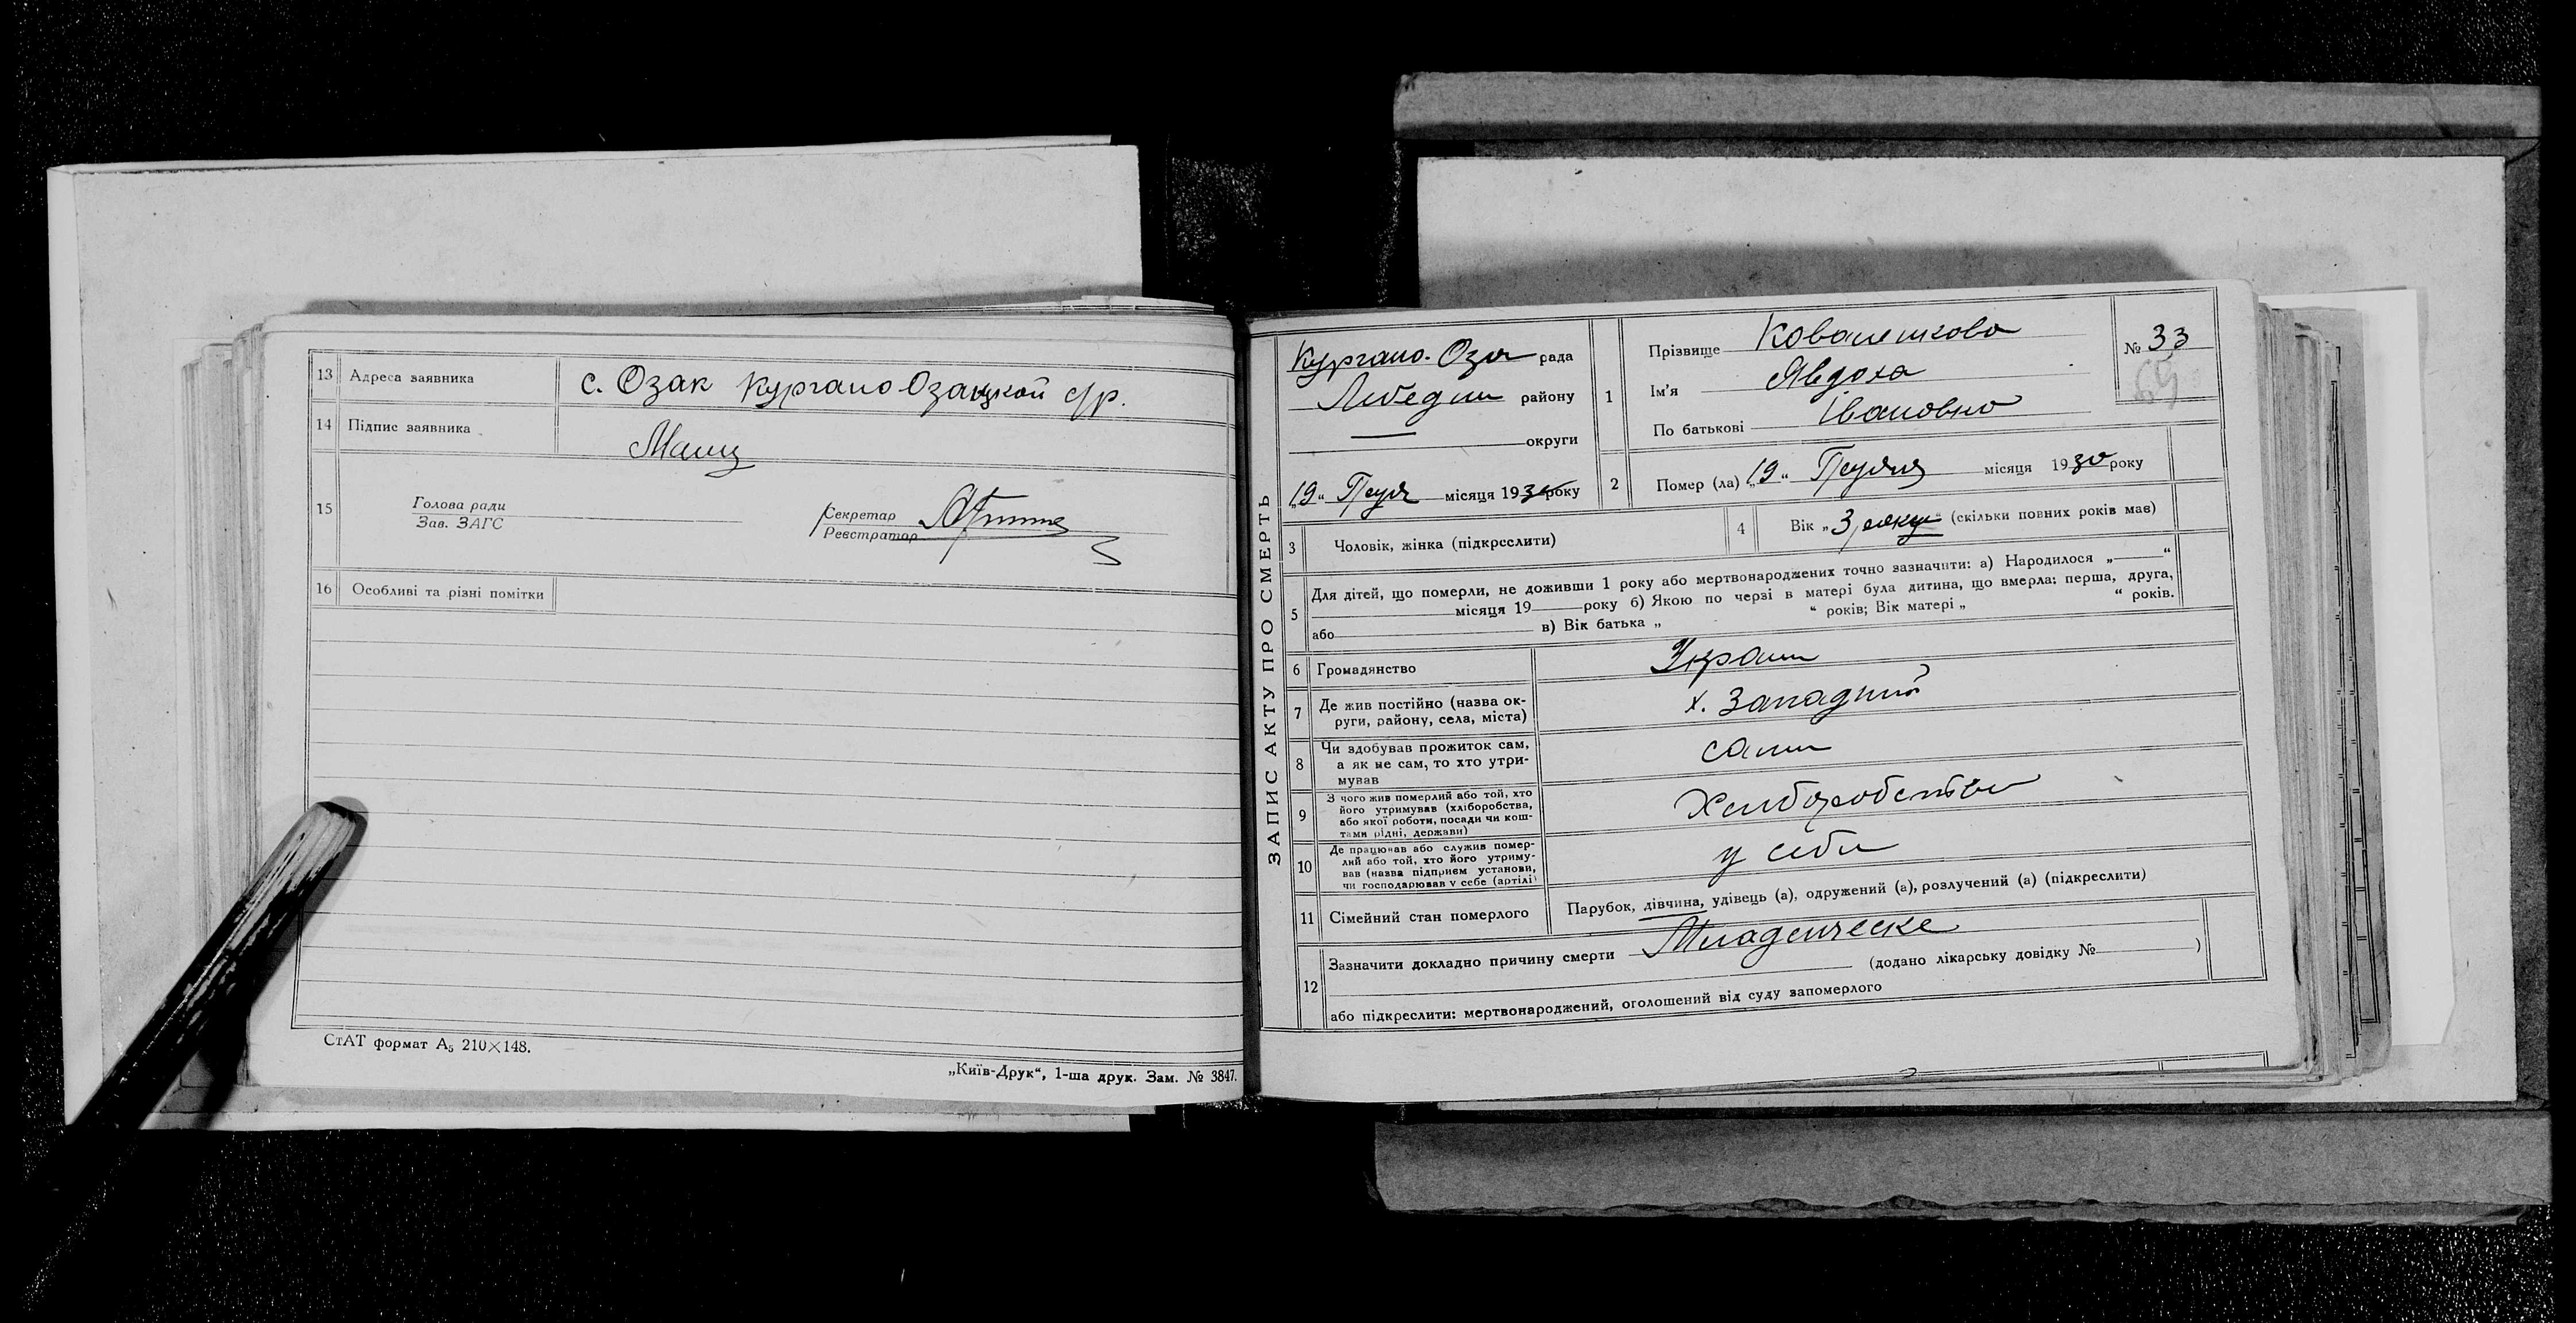 13 Адреса заявника с. Озак Кургано Озацкой с/р.
14 Підпис заявника
15 Голова ради
Зав. ЗАГС
Секретар
Реєстратор
16 Особливі та різні помітки
СтАТ формат А5 210×148.
„Київ-Друк“, 1-ша друк. Зам. № 3847.
ЗАПИС АКТУ ПРО СМЕРТЬ
Кургано-Озак рада
Лебедин району
округи
„19“ Грудя місяця 1930 року
1 Прізвище Ковалешкова
Ім'я Явдоха
По батькові Івановна
№ 33
69
2 Помер (ла) „19“ Грудня місяця 1930 року
3 Чоловік, жінка (підкреслити)
4 Вік „3 роки“ (скільки повних років мав)
5 Для дітей, що померли, не доживши 1 року або мертвонароджених точно зазначити: а) Народилося „ “
місяця 19 року б) Якою по черзі в матері була дитина, що вмерла: перша, друга,
або в) Вік батька „ “ років; Вік матері „ “ років.
6 Громадянство Україн
7 Де жив постійно (назва ок-
руги, району, села, міста) х. Западний
8 Чи здобував прожиток сам,
а як не сам, то хто утри-
мував
9 З чого жив померлий або той, хто
його утримував (хліборобства,
або якої роботи, посади чи кош-
тами рідні, держави) Хлиборобство
10 Де працював або служив помер-
лий або той, хто його утриму-
вав (назва підприєм установи,
чи господарював у себе (артілі) у себи
11 Сімейний стан померлого Парубок, дівчина, удівець (а), одружений (а), розлучений (а) (підкреслити)
12 Зазначити докладно причину смерти Младенческе
(додано лікарську довідку № )
або підкреслити: мертвонароджений, оголошений від суду запомерлого